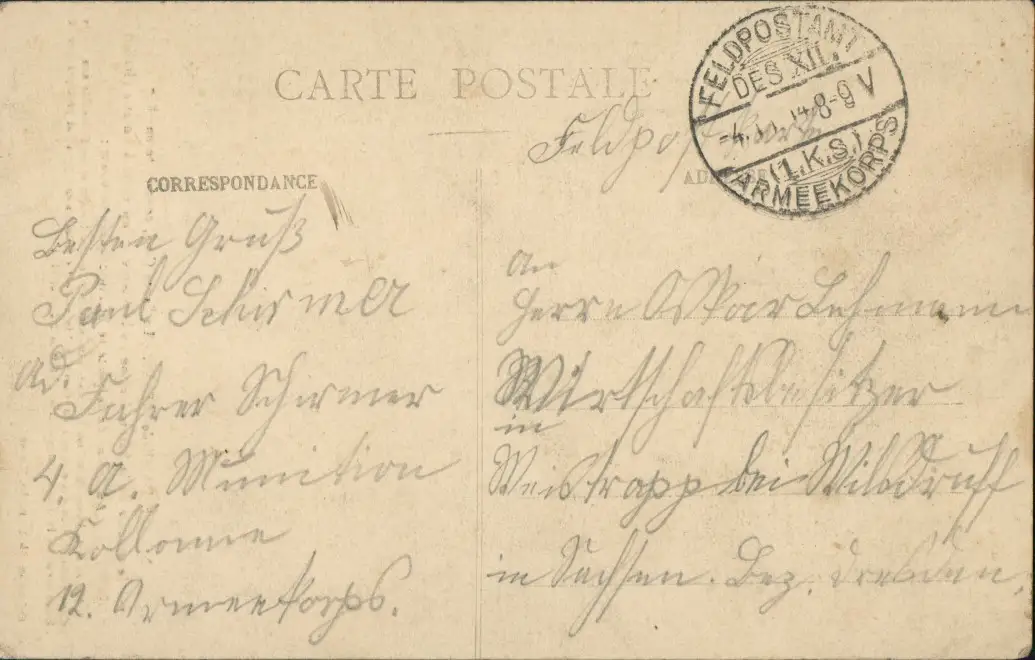 CARTE POSTALE
Feldpostkarte
FELDPOSTAMT
DES XII.
-4. 14 8-9 V
(1.K.S.)
ARMEEKORPS
CORRESPONDANCE
Besten Gruß
Paul Schirmer
ad.
Fahrer Schirmer
4. A. Munition
Kollonne
12. Armeekorps.
An
Herrn Oskar Lehmann
Wirtschaftsbesitzer
in
Weistropp bei Wilsdruff
in Sachsen. Bez. Dresden.